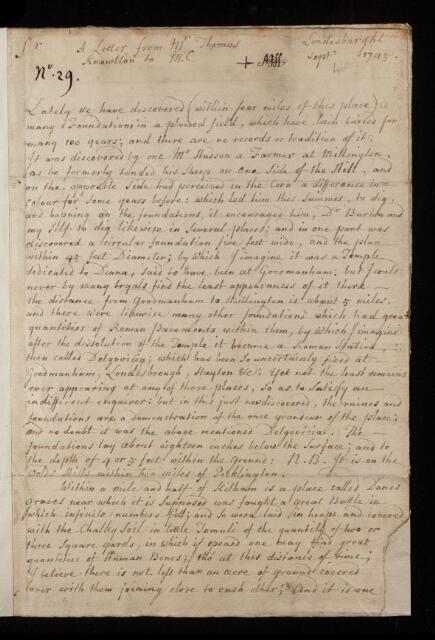 Sr A Letter from Mr Thomas Londesburgh
Knowlton to M.C Septr 1745.
No. 29.
Lately we have discovered (within four miles of this place) so
many Foundations in a plowed field, which have lain buried for
many 100 years; and there are no records or tradition of it.
It was discovered by one Mr Hudson a Farmer at Millington,
as he formerly tended his Sheep on one Side of the Hill, and
on the opposite Side had perceived in the Corn a difference in
colour for Some years before: which led him this Summer, to dig,
and hapning on the foundations, it encouraged him, Dr Burton and
my Self to dig likewise in Several places; and in one part was
discovered a circular foundation five feet wide, and the plan
within 45 feet Diameter; by which I imagine it was a Temple
dedicated to Diana, said to have been at Goodmanham; but I could
never by many tryals find the least appearances of it there
the distance from Goodmanham to Millington is about 5 miles.
and there were likewise many other foundations which had great
quantities of Roman pavements within them, by which I imagine
after the dissolution of the Temple it became a Roman Station,
then called Delgovicia; which had been So uncertainly fixed at
Goodmanham, Londesbrough, Hayton &c: Yet not the least remains
ever appearing at any of those places, So as to Satisfy an
indifferent enquirer: but in this just now discovered, the ruines and
foundations are a demonstration of the once grandeur of the place;
and no doubt it was the above mentioned Delgovicia. The
foundations lay about eighteen inches below the Surface; and to
the depth of 4 or 5 feet within the Ground: N.B. It is on the
Wold Hills within two miles of Pocklington.
Within a mile and half of Kilham is a place called Danes
Graves near which it is Supposed was fought a great Battle in
which infinite numbers fell; and So were laid in heaps and covered
with the Chalky Soil in little Tumuli of the quantity of two or
three Square yards, in which if opened one may find great
quantities of Human Bones; tho' at this distance of time;
I believe there is not less than an acre of ground covered
over with them joining close to each other; And it is one